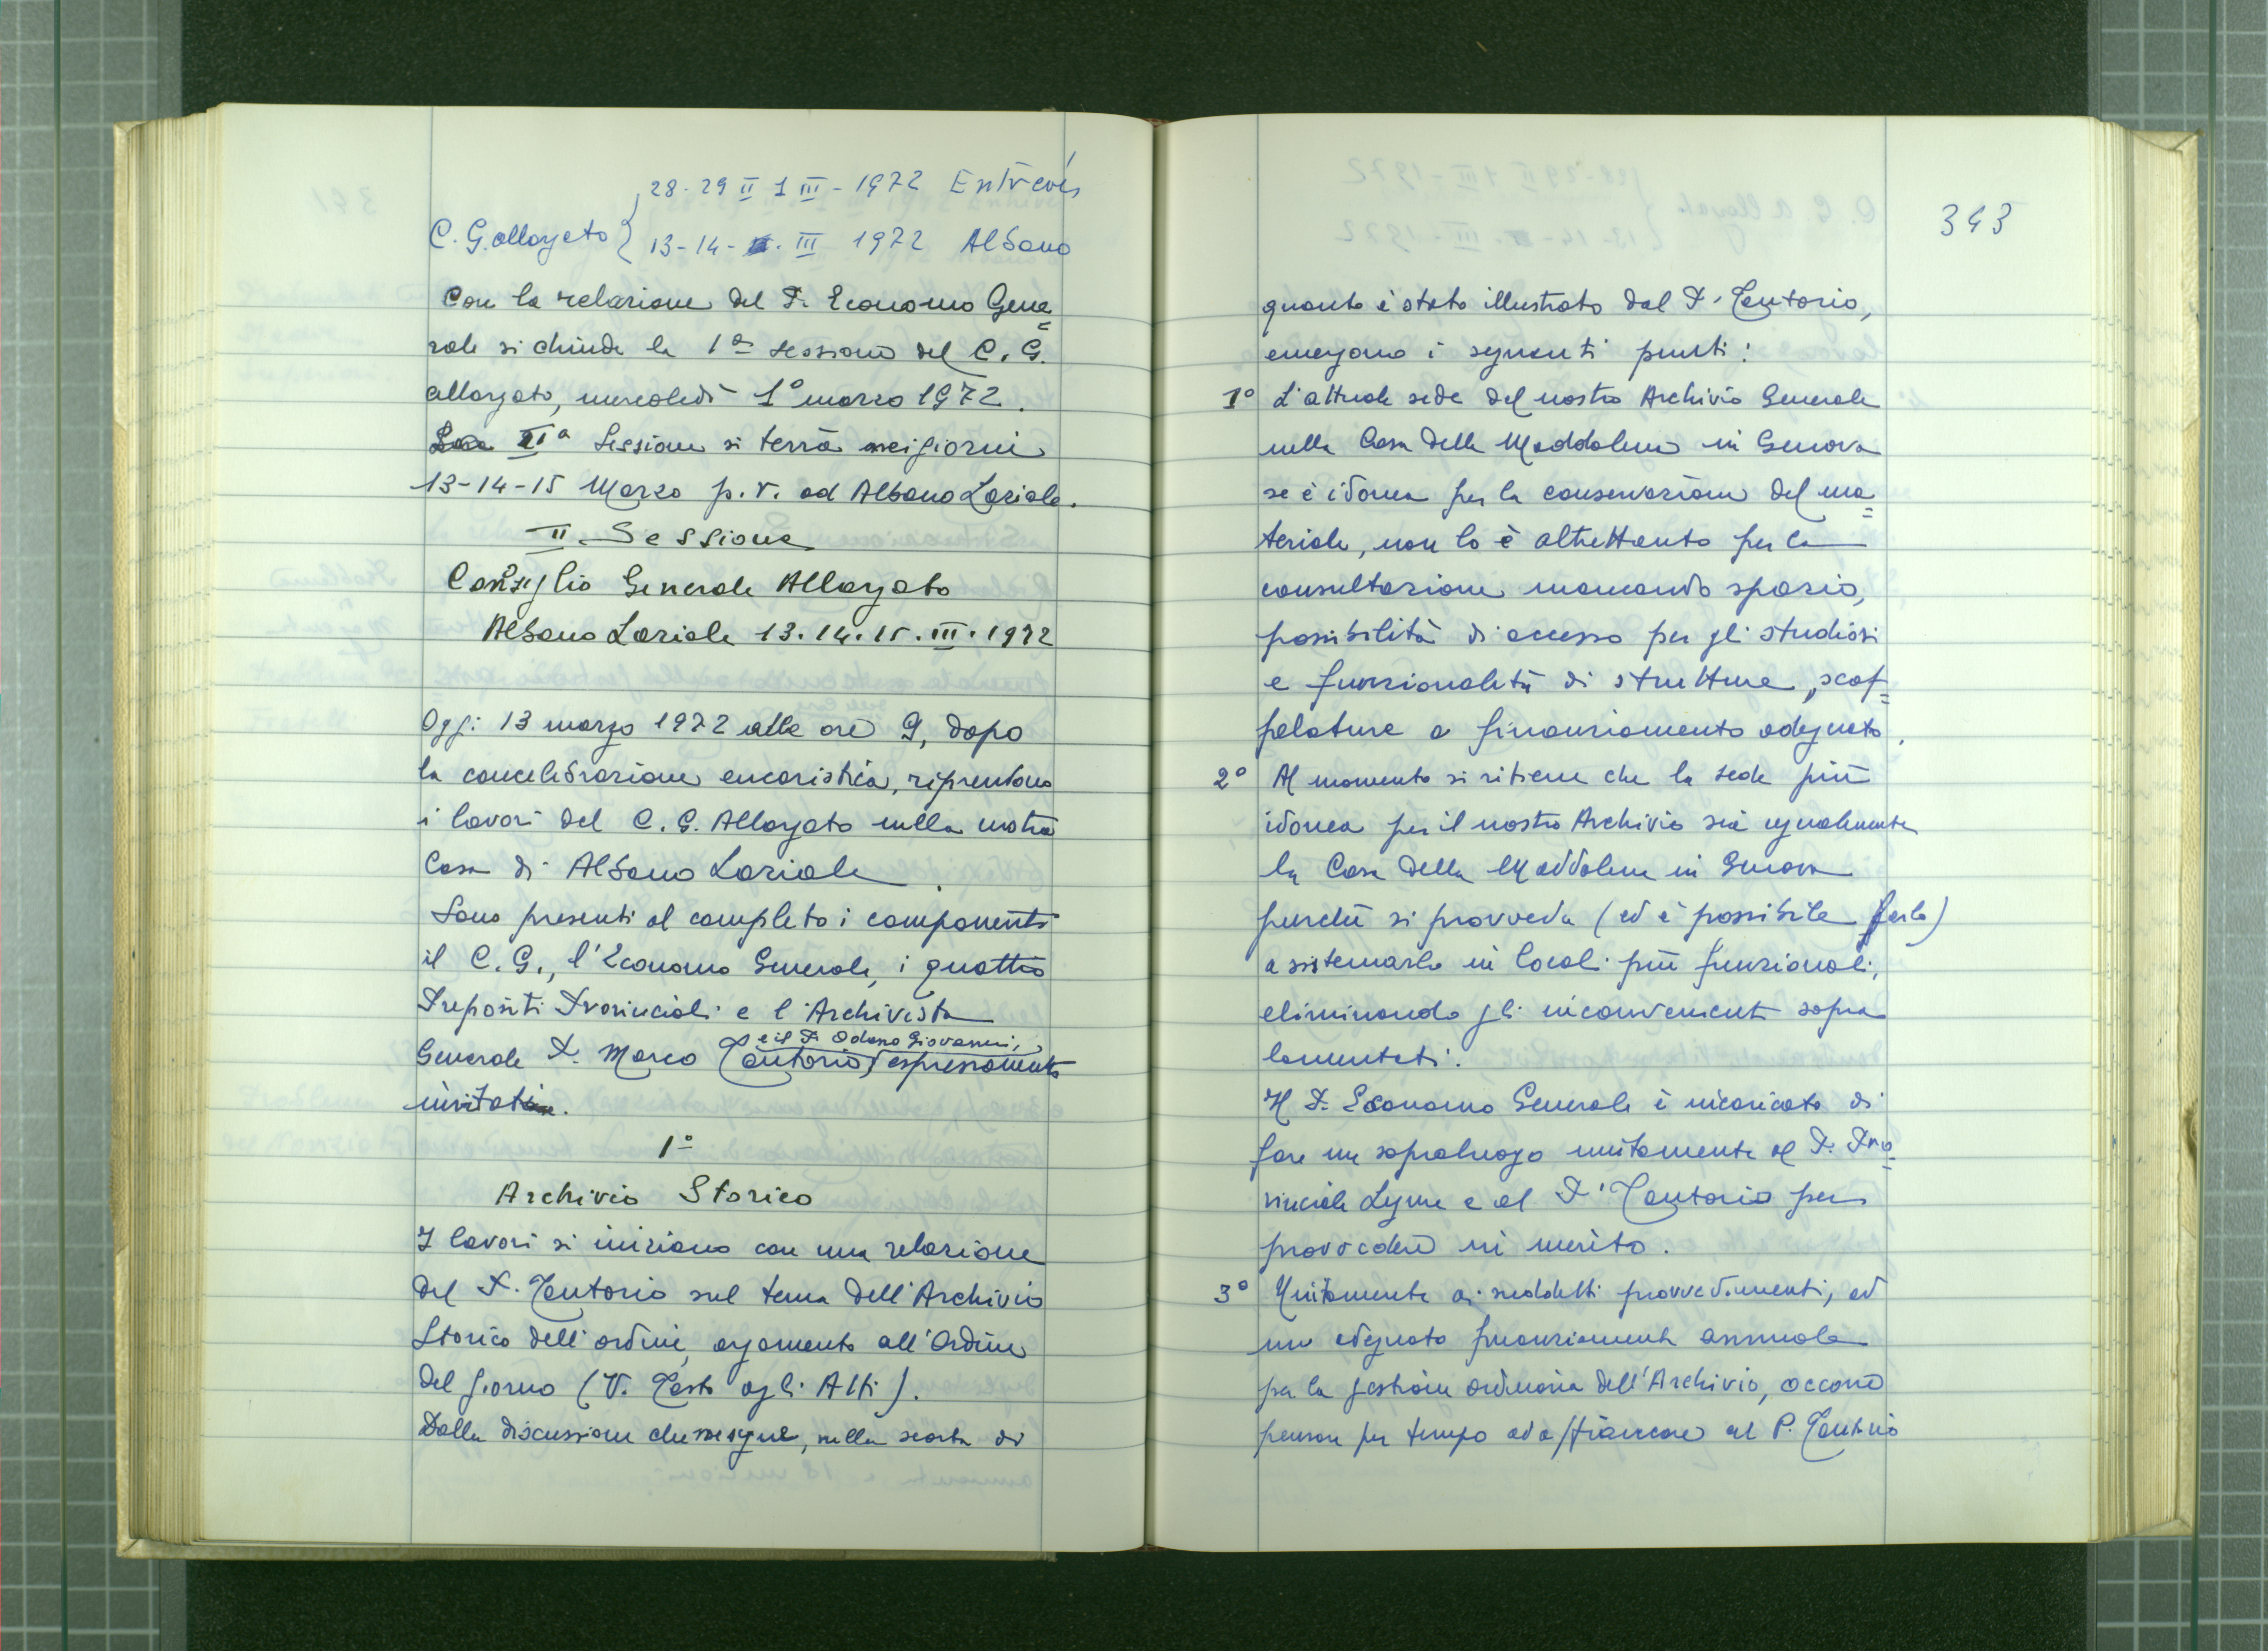 28-29 II 1 III - 1972 Entrèves
C. G. allargato { 13-14- III 1972 Albano
Con la relazione del P. Economo Gene=
rale si chiude la 1a sessione del C. G.
allargato, mercoledì 1° marzo 1972.
IIa Sessione si terrà nei giorni
13-14-15 Marzo p.v. ad Albano Laziale.
II. Sessione
Consiglio Generale Allargato
Albano Laziale 13.14.15.III.1972
Oggi 13 marzo 1972 alle ore 9, dopo
la concelebrazione eucaristica, riprendono
i lavori del C. G. Allargato nella nostra
Casa di Albano Laziale.
Sono presenti al completo i componenti
il C. G., l'Economo Generale, i quattro
Prepositi Provinciali e l'Archivista
e il P. Odasso Giovanni,
Generale P. Marco Tentorio, espressamente
invitati.
1°
Archivio Storico
I lavori si iniziano con una relazione
del P. Tentorio sul tema dell'Archivio
Storico dell'ordine, argomento all'Ordine
del giorno (V. Testo agli Atti).
Dalla discussione che segue, sulla scorta di
343
quanto è stato illustrato dal P. Tentorio,
emergono i seguenti punti:
1° L'attuale sede del nostro Archivio Generale
nella Casa della Maddalena in Genova
se è idonea per la conservazione del ma=
teriale, non lo è altrettanto per la
consultazione mancando spazio,
possibilità di accesso per gli studiosi
e funzionalità di strutture, scaf=
falature e finanziamento adeguato.
2° Al momento si ritiene che la sede più
idonea per il nostro Archivio sia ugualmente
la Casa della Maddalena in Genova
purché si provveda (ed è possibile farlo)
a sistemarlo in locali più funzionali,
eliminando gli inconvenienti sopra
lamentati.
Il P. Economo Generale è incaricato di
fare un sopraluogo unitamente al P. Pro=
vinciale Ligure e al P. Tentorio per
provvedere in merito.
3° Unitamente ai suddetti provvedimenti, ad
un adeguato finanziamento annuale
per la gestione ordinaria dell'Archivio, occorre
pensare per tempo ad affiancare al P. Tentorio